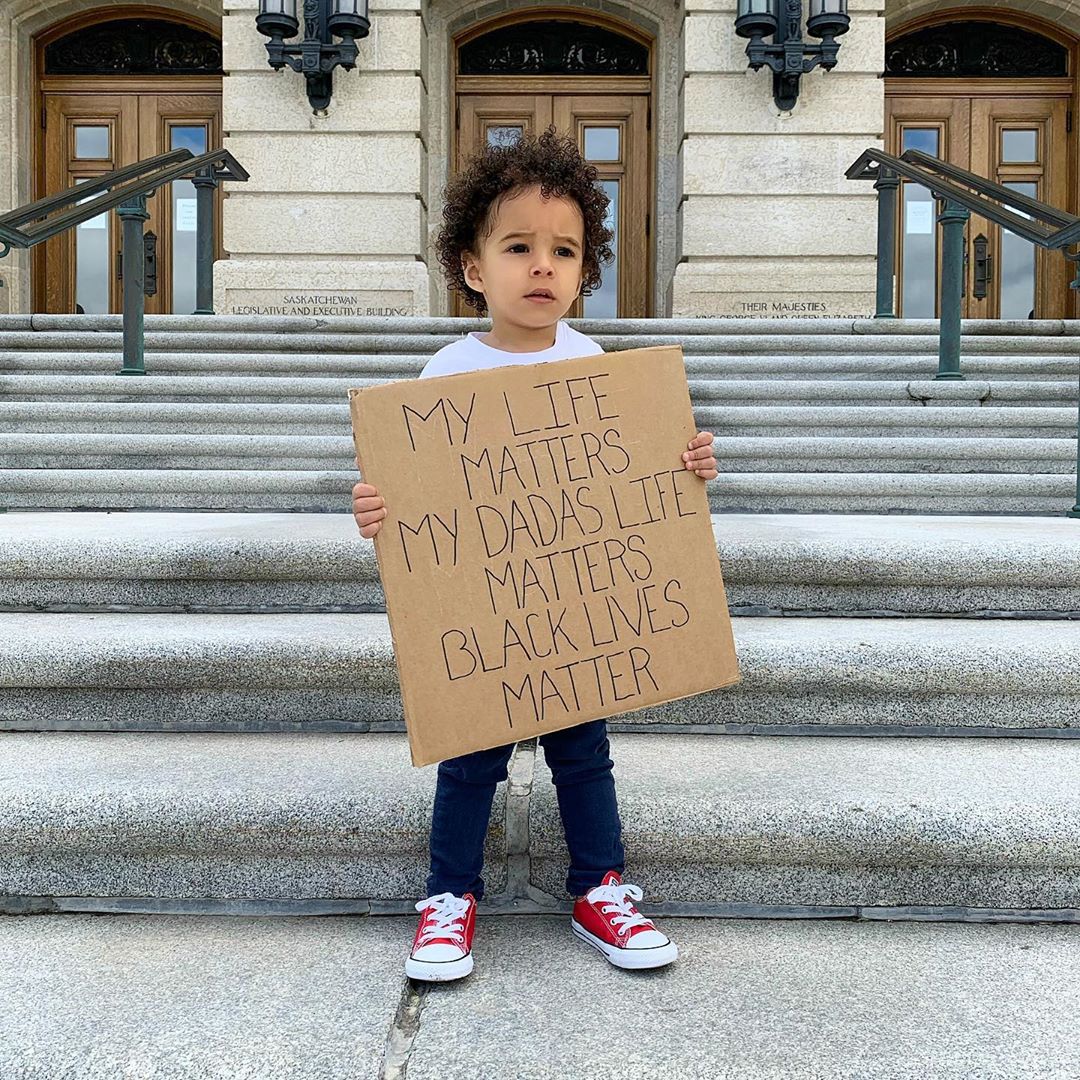 SASKATCHEWAN
LEGISLATIVE AND EXECUTIVE BUILDING
THEIR MAJESTIES
KING GEORGE VI AND QUEEN ELIZABETH
MY LIFE
MATTERS
MY DADAS LIFE
MATTERS
BLACK LIVES
MATTER